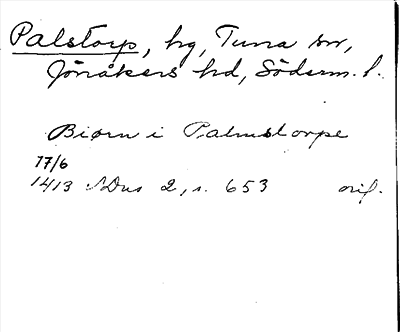 Palstorp, hg, Tuna sn,
Jönåkers hd, Söderm. l.
Biørn i Palmstorpe
17/6
1413 SDns 2, s. 653 orig.